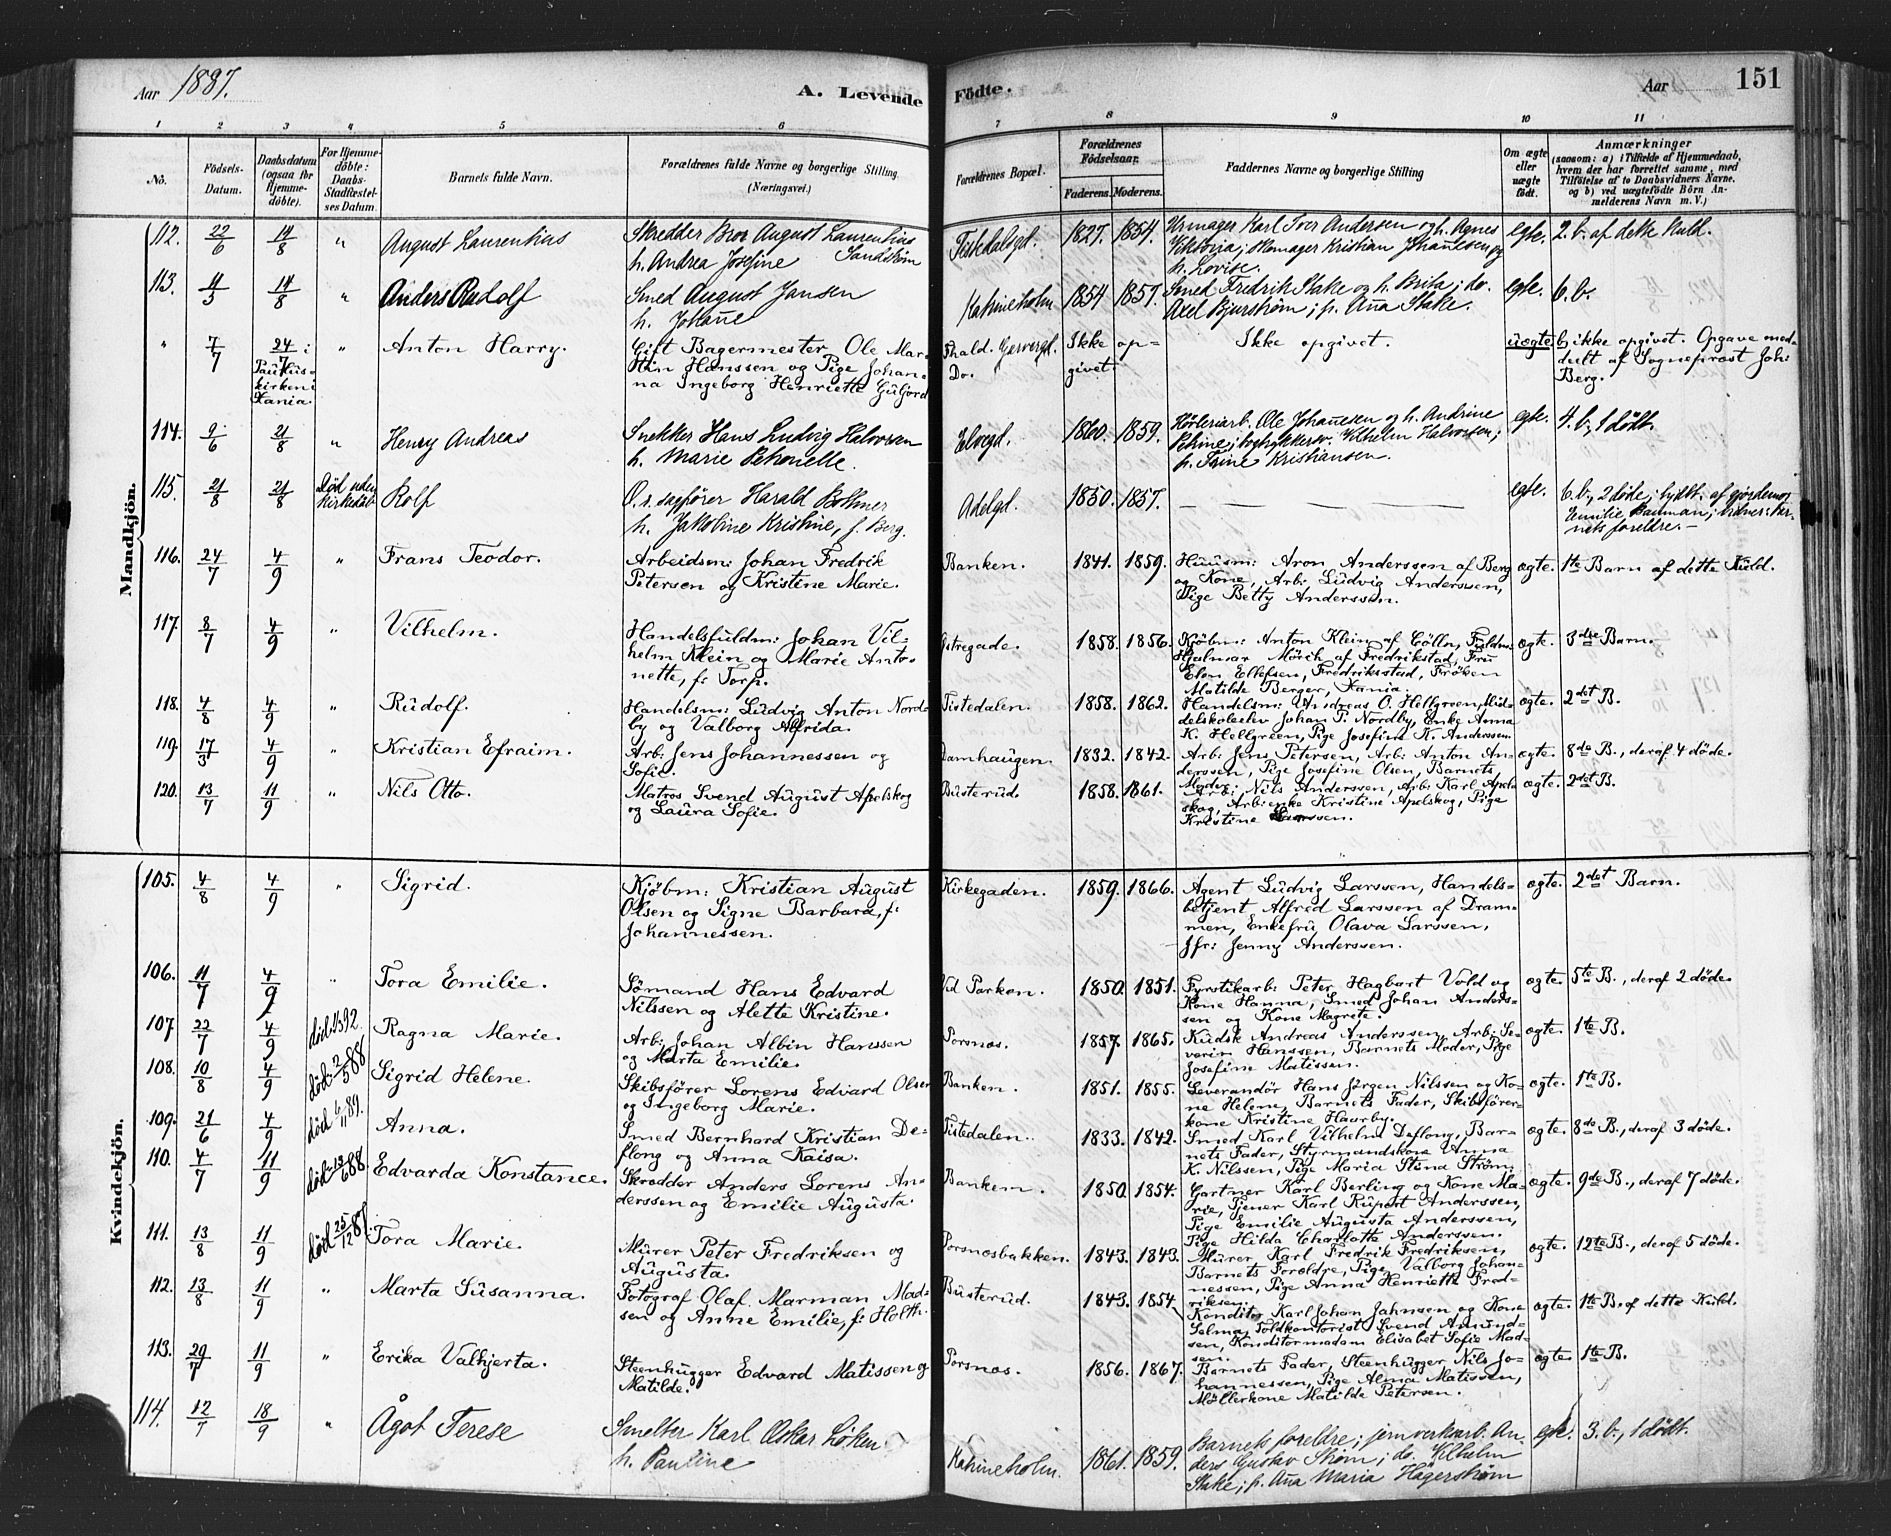 Aar 1887. A. Levende Fødte. Aar 151
1 2 3 4 5 6 7 8 9 10 11
No. Födsels-Datum. Daabsdatum (ogsaa for Hjemme-döbte). For Hjemme-döbte: Daabs-Stadfæstel-ses Datum. Barnets fulde Navn. Forældrenes fulde Navne og borgerlige Stilling. (Næringsvei.) Forældrenes Bopæl. Forældrenes Födselsaar. Faderens. Moderens. Faddernes Navne og borgerlige Stilling Om ægte eller uægte födt. Anmærkninger (saasom: a) i Tilfælde af Hjemmedaab, hvem der har forrettet samme, med Tilföielse af to Daabsvidners Navne, og b) ved uægtefödte Börn An-melderens Navn m. V.)
Mandkjön.
112. 22/6 14/8 " August Laurentius Skredder Bror August Laurentius Sandstrøm
h. Andrea Josefine Tistedalsgd. 1827. 1854. Urmager Karl Iver Andersen og h. Agnes
Viktoria; Kristian Johannesen og
h. Lovise. egte. 2. b. af dette kuld.
113. 11/5 14/8 " Anders Rudolf Smed August Jansen
h. Johanne Katrineholm 1854 1857. Smed Fredrik Stake og h. Brita; do.
Axel Bjurstrøm; p. Anna Stake. egte. 6. b.
" 7/7 24/7 i Paulus-kirken i Xania. " Anton Harry. Gift Bagermester Ole Mar-
tin Hanssen og Pige Johan-
na Ingeborg Henriette Guljord Fhald.
Do. Ikke op-
givet. Ikke opgivet. uægte b. ikke opgivet. Opgave med-
delt af Sognepræst Johs
Berg.
114. 9/6 21/8 " Henry Andreas Snekker Hans Ludvig Halvorsen
h. Marie Petronelle. Elvegd. 1860. 1859. Høvleriarb. Ole Johannesen og h. Andrine
Petrine; bogtrykkersv. Vilhelm Halvorsen;
p. Trine Kristiansen. egte. 4. b., 1 dødt.
115. 21/8 21/8 Død uden kirkedåb Rolf O.r. sagfører Harald Bothner
h. Jakobine Kristine, f. Berg. Adelgd. 1850. 1857. — — — — egte. 6. b., 2 døde; hjdbt. af gjordemor
Emilie Bauman; vidner: bar-
nets foreldre.—
116. 24/7 4/9 " Frans Teodor. Arbeidsm: Johan Fredrik
Petersen og Kristine Marie. Banken. 1841. 1859. Huusm: Aron Anderssen af Berg
og Kone, Arb: Ludvig Anderssen,
Pige Betty Anderssen. ægte. 1te Barn af dette Kuld.
117. 8/7 4/9 " Vilhelm. Handelsfuldm: Johan Vil-
helm Klein og Marie Anto-
nette, f: Torp. Østregade. 1858. 1856. Kjøbm: Anton Klein af Cölln, Fuldm:
Hjalmar Mörch af Fredrikstad, Fru
Elen Ellefsen, Fredriksstad, Fröken
Matilde Berger, Xania. ægte. 3die Barn.
118. 4/8 4/9 " Rudolf. Handelsm: Ludvig Anton Nord-
by og Valborg Alfrida. Tistedalen. 1858. 1862. Handelsm: Andreas O. Hellgreen, Mid-
delskoleelev Johan P. Nordby, Enke Anna
K. Hellgreen, Pige Josefine K. Anderssen. ægte. 2det B.
119. 17/3 4/9 " Kristian Efraim. Arb: Jens Johannessen og
Sofie. Damhaugen. 1832. 1842. Arb: Jens Petersen, Arb: Anton An-
derssen, Pige Josefine Olsen, Barnets
Moder. ægte. 8de B., deraf 4 döde.
120. 13/7 11/9 " Nils Otto. Matros Svend August Apelskog
og Laura Sofie. Busterud. 1858. 1861. Arb: Nils Anderssen, Arb: Karl Apel-
skog, Arb:enke Kristine Apelskog, Pige
Kristine Larssen. ægte. 2det B.
Kvindekjön.
105. 4/8 4/9 " Sigrid. Kjöbm: Kristian August
Olsen og Signe Barbara, f:
Johannessen. Kirkegaden. 1859. 1866. Agent Ludvig Larssen, Handels-
betjent Alfred Larssen af Dram-
men, Enkefru Olava Larssen,
Jfr: Jenny Anderssen. ægte. 2det Barn.
106. 11/7 4/9 " Tora Emilie. Sömand Hans Edvard
Nilssen og Alette Kristine. Vid Parken. 1850. 1851. Fyrstikarb: Peter Hagbart Vold og
Kone Hanna, Smed Johan Anders-
sen og Kone Magrete. ægte. 5te B., deraf 2 döde.
107. 22/7 4/9 død 92. Ragna Marie. Arb: Johan Albin Hanssen
og Marta Emilie. Porsnæs. 1857. 1865. Kudsk Andreas Anderssen, Arb: Se-
verin Hanssen, Barnets Moder, Pige
Josefine Matissen. ægte. 1te B.
108. 10/8 4/9 død 2/5 88 Sigrid Helene. Skibsförer Lorens Edvard Olsen
og Ingeborg Marie. Banken. 1851. 1855. Leverandør Hans Jörgen Nilssen og Ko-
ne Helene, Barnets Fader, Skibsförer-
kone Kristine Haarby. ægte. 1te B.
109. 21/6 4/9 død 6/11 89. Anna. Smed Bernhard Kristian De-
flong og Anna Kaisa. Tistedalen. 1833. 1842. Smed Karl Vilhelm Deflong, Bar-
nets Fader, Styrmandskone Anna
K. Nilssen, Pige Maria Stina Ström. ægte. 8de B., deraf 3 döde.
110. 4/7 11/9 død 13/6 88 Edvarda Konstance. Skrædder Anders Lorens An-
derssen og Emilie Augusta. Banken. 1850 1854. Gartner Karl Berling og Kone Ma-
rie, Tjener Karl Rupert Anderssen,
Pige Emilie Augusta Anderssen,
Pige Hilda Charlotte Anderssen. ægte. 9de B., deraf 7 döde.
111. 13/8 11/9 død 25/12 87. Tora Marie. Murer Peter Fredriksen og
Augusta. Porsnæsbakken. 1843. 1843. Murer Karl Fredrik Fredriksen,
Barnets Forældre, Pige Valborg Johan-
nessen, Pige Anna Henriette Fred-
riksen. ægte. 12te B., deraf 5 döde.
112. 13/8 11/9 " Marta Susanna. Fotograf Olaf Marman Mad-
sen og Anne Emilie, f: Holth. Busterud. 1843. 1854 Konditor Karl Johan Jahnsen og Kone
Selma, Toldkontorist Svend Amund-
sen, Konditormadam Elisabet Sofie Mad-
sen. ægte. 1te B. af dette Kuld.
113. 29/7 11/9 " Erika Valhjerta. Steenhugger Edvard Matissen og
Matilde. Porsnæs. 1856. 1867. Barnets Fader, Steenhugger Nils Jo-
hannessen, Pige Alma Matissen,
Möllerkone Matilde Petersen. ægte. 1te B.
114. 12/7 18/9 " Ågot Terese Smelter Karl Oskar Løken
h. Pauline Katrineholm. 1861. 1859. Barnets foreldre; jernverksarb. An-
ders Gustav Strøm; do. Vilhelm
Stake; p. Anna Maria Hägerstrøm egte. 3. b., 1 dødt.